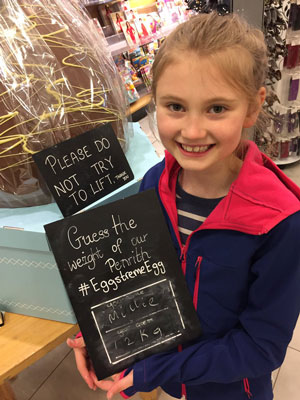 PLEASE DO
NOT TRY
TO LIFT.
THANK YOU
Guess the
weight of our
Penrith
#EggstremeEgg
Millie
12Kg